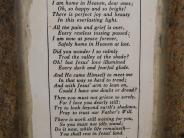 I am home in Heaven, dear ones;
Oh, so happy and so bright!
There is perfect joy and beauty
In this everlasting light.
All the pain and grief is over,
Every restless tossing passed;
I am now at peace forever,
Safely home in Heaven at last.
Did you wonder I so calmly
Trod the valley of the shade?
Oh! but Jesus' love illumined
Every dark and fearful glade.
And He came Himself to meet me
In that way so hard to tread;
And with Jesus' arm to lean on,
Could I have one doubt or dread?
Then you must not grieve so sorely,
For I love you dearly still:
Try to look beyond earth's shadows,
Pray to trust our Father's Will.
There is work still waiting for you,
So you must not idly stand;
Do it now, while life remaineth
You shall rest in Jesus' land.